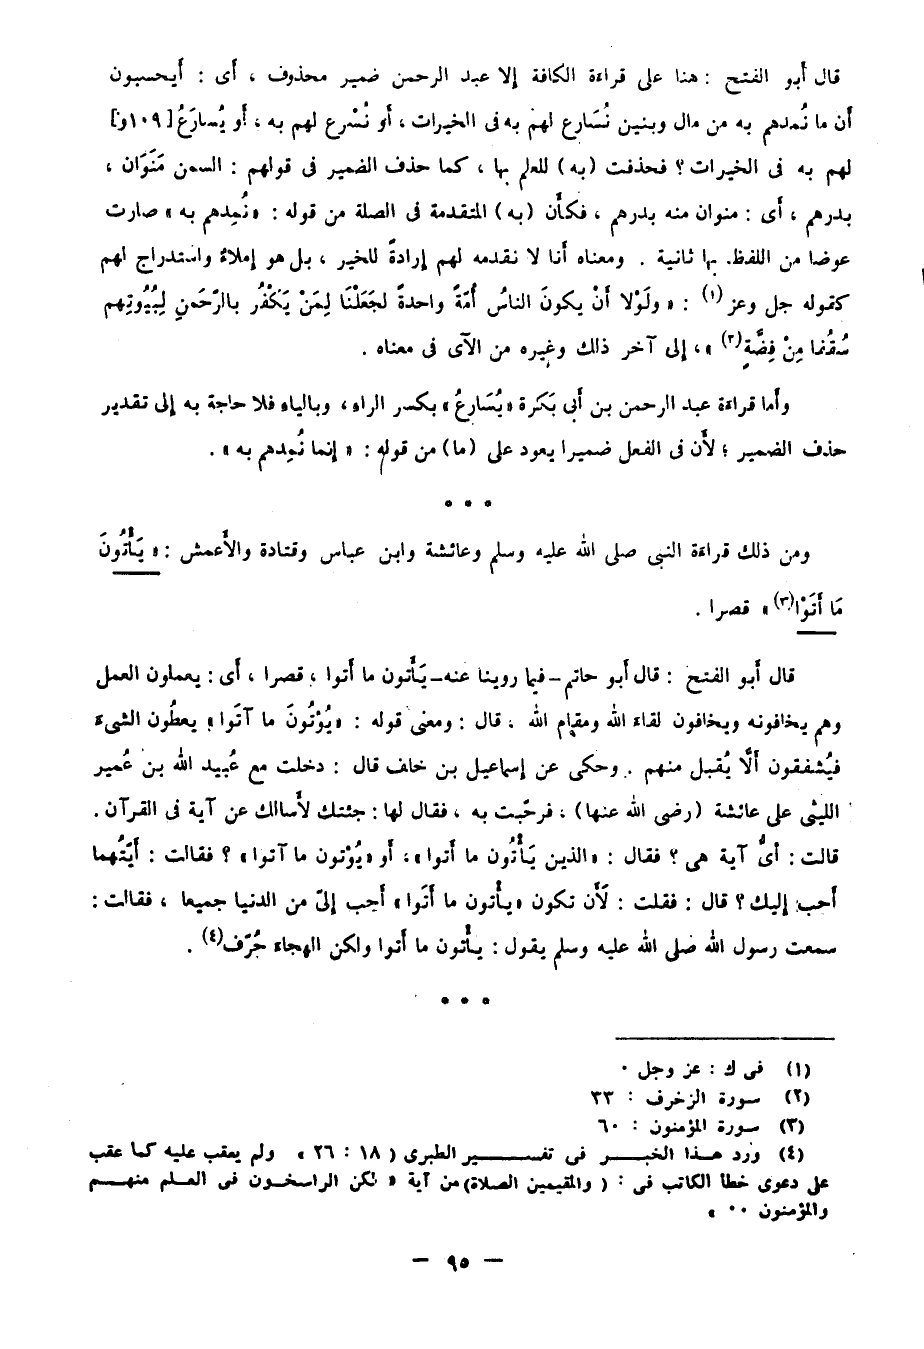 قال أبو الفتح : هنا على قراءة الكافة إلا عبد الرحمن ضمير محذوف ، أى : أيحسبون
أن ما نُمِدهم به من مال وبنين نُسَارِع لهم به فى الخيرات ، أو نُسْرِع لهم به ، أو يُسارَعُ [١٠٩و]
لهم به فى الخيرات ؟ فحذفت (به) للعلم بها ، كما حذف الضمير فى قولهم : السمن مَنَوَان ،
بدرهم ، أى : منوان منه بدرهم ، فكأن (به) المتقدمة فى الصلة من قوله : «نُمِدهم به» صارت
عوضا من اللفظ بها ثانية . ومعناه أنا لا نقدمه لهم إرادةً للخير ، بل هو إملاءٌ واستدراج لهم
كقوله جل وعز(١) : «ولَوْلا أنْ يكونَ الناسُ أُمَّةً واحدةً لجَعَلْنَا لِمَنْ يَكْفُر بالرّحمَنِ لِبُيُوتِهِم
سُقُفا مِنْ فِضَّةٍ(٢) » ، إلى آخر ذلك وغيره من الآى فى معناه .
وأما قراءة عبد الرحمن بن أبى بَكرة «يُسَارِعُ» بكسر الراء ، وبالياء فلا حاجة به إلى تقدير
حذف الضمير ؛ لأَن فى الفعل ضميرا يعود على (ما) من قوله : « إنما نُمِدهم به » .
* * *
ومن ذلك قراءة النبى صلى الله عليه وسلم وعائشة وابن عباس وقتادة والأَعمش : « يَأْتُونَ
مَا أَتَوْا(٣) » قصرا .
قال أبو الفتح : قال أبو حاتم - فيما روينا عنه - يَأْتون ما أَتوا ، قصرا ، أى : يعملون العمل
وهم يخافونه ويخافون لقاء الله ومقام الله ، قال : ومعنى قوله : «يُؤْتُونَ ما آتَوا» يعطُون الشىء
فيُشفقون أَلَّا يُقبل منهم . وحكى عن إسماعيل بن خلف قال : دخلت مع عُبيد الله بن عُمير
الليثى على عائشة (رضى الله عنها) ، فرحّبت به ، فقال لها : جئتك لأسالك عن آية فى القرآن .
قالت : أىُّ آية هى ؟ فقال : «الذين يَأْتُون ما أَتوا» ، أو «يُؤتون ما آتوا» ؟ فقالت : أيّتُهما
أحب إليك ؟ قال : فقلت : لَأَن تكون «يأتون ما أتَوا» أحب إلىّ من الدنيا جميعا ، فقالت :
سمعت رسول الله صلى الله عليه وسلم يقول : يأتون ما أتوا ولكن الهجاء حُرّف(٤) .
* * *
(١) فى ك : عز وجل .
(٢) سورة الزخرف : ٣٣
(٣) سورة المؤمنون : ٦٠
(٤) ورد هذا الخبر فى تفسير الطبرى ( ١٨ : ٢٦ » ولم يعقب عليه كما عقب
على دعوى خطأ الكاتب فى : ( والمقيمين الصلاة) من آية « لكن الراسخون فى العلم منهم
والمؤمنون ٠٠ »
— ٩٥ —